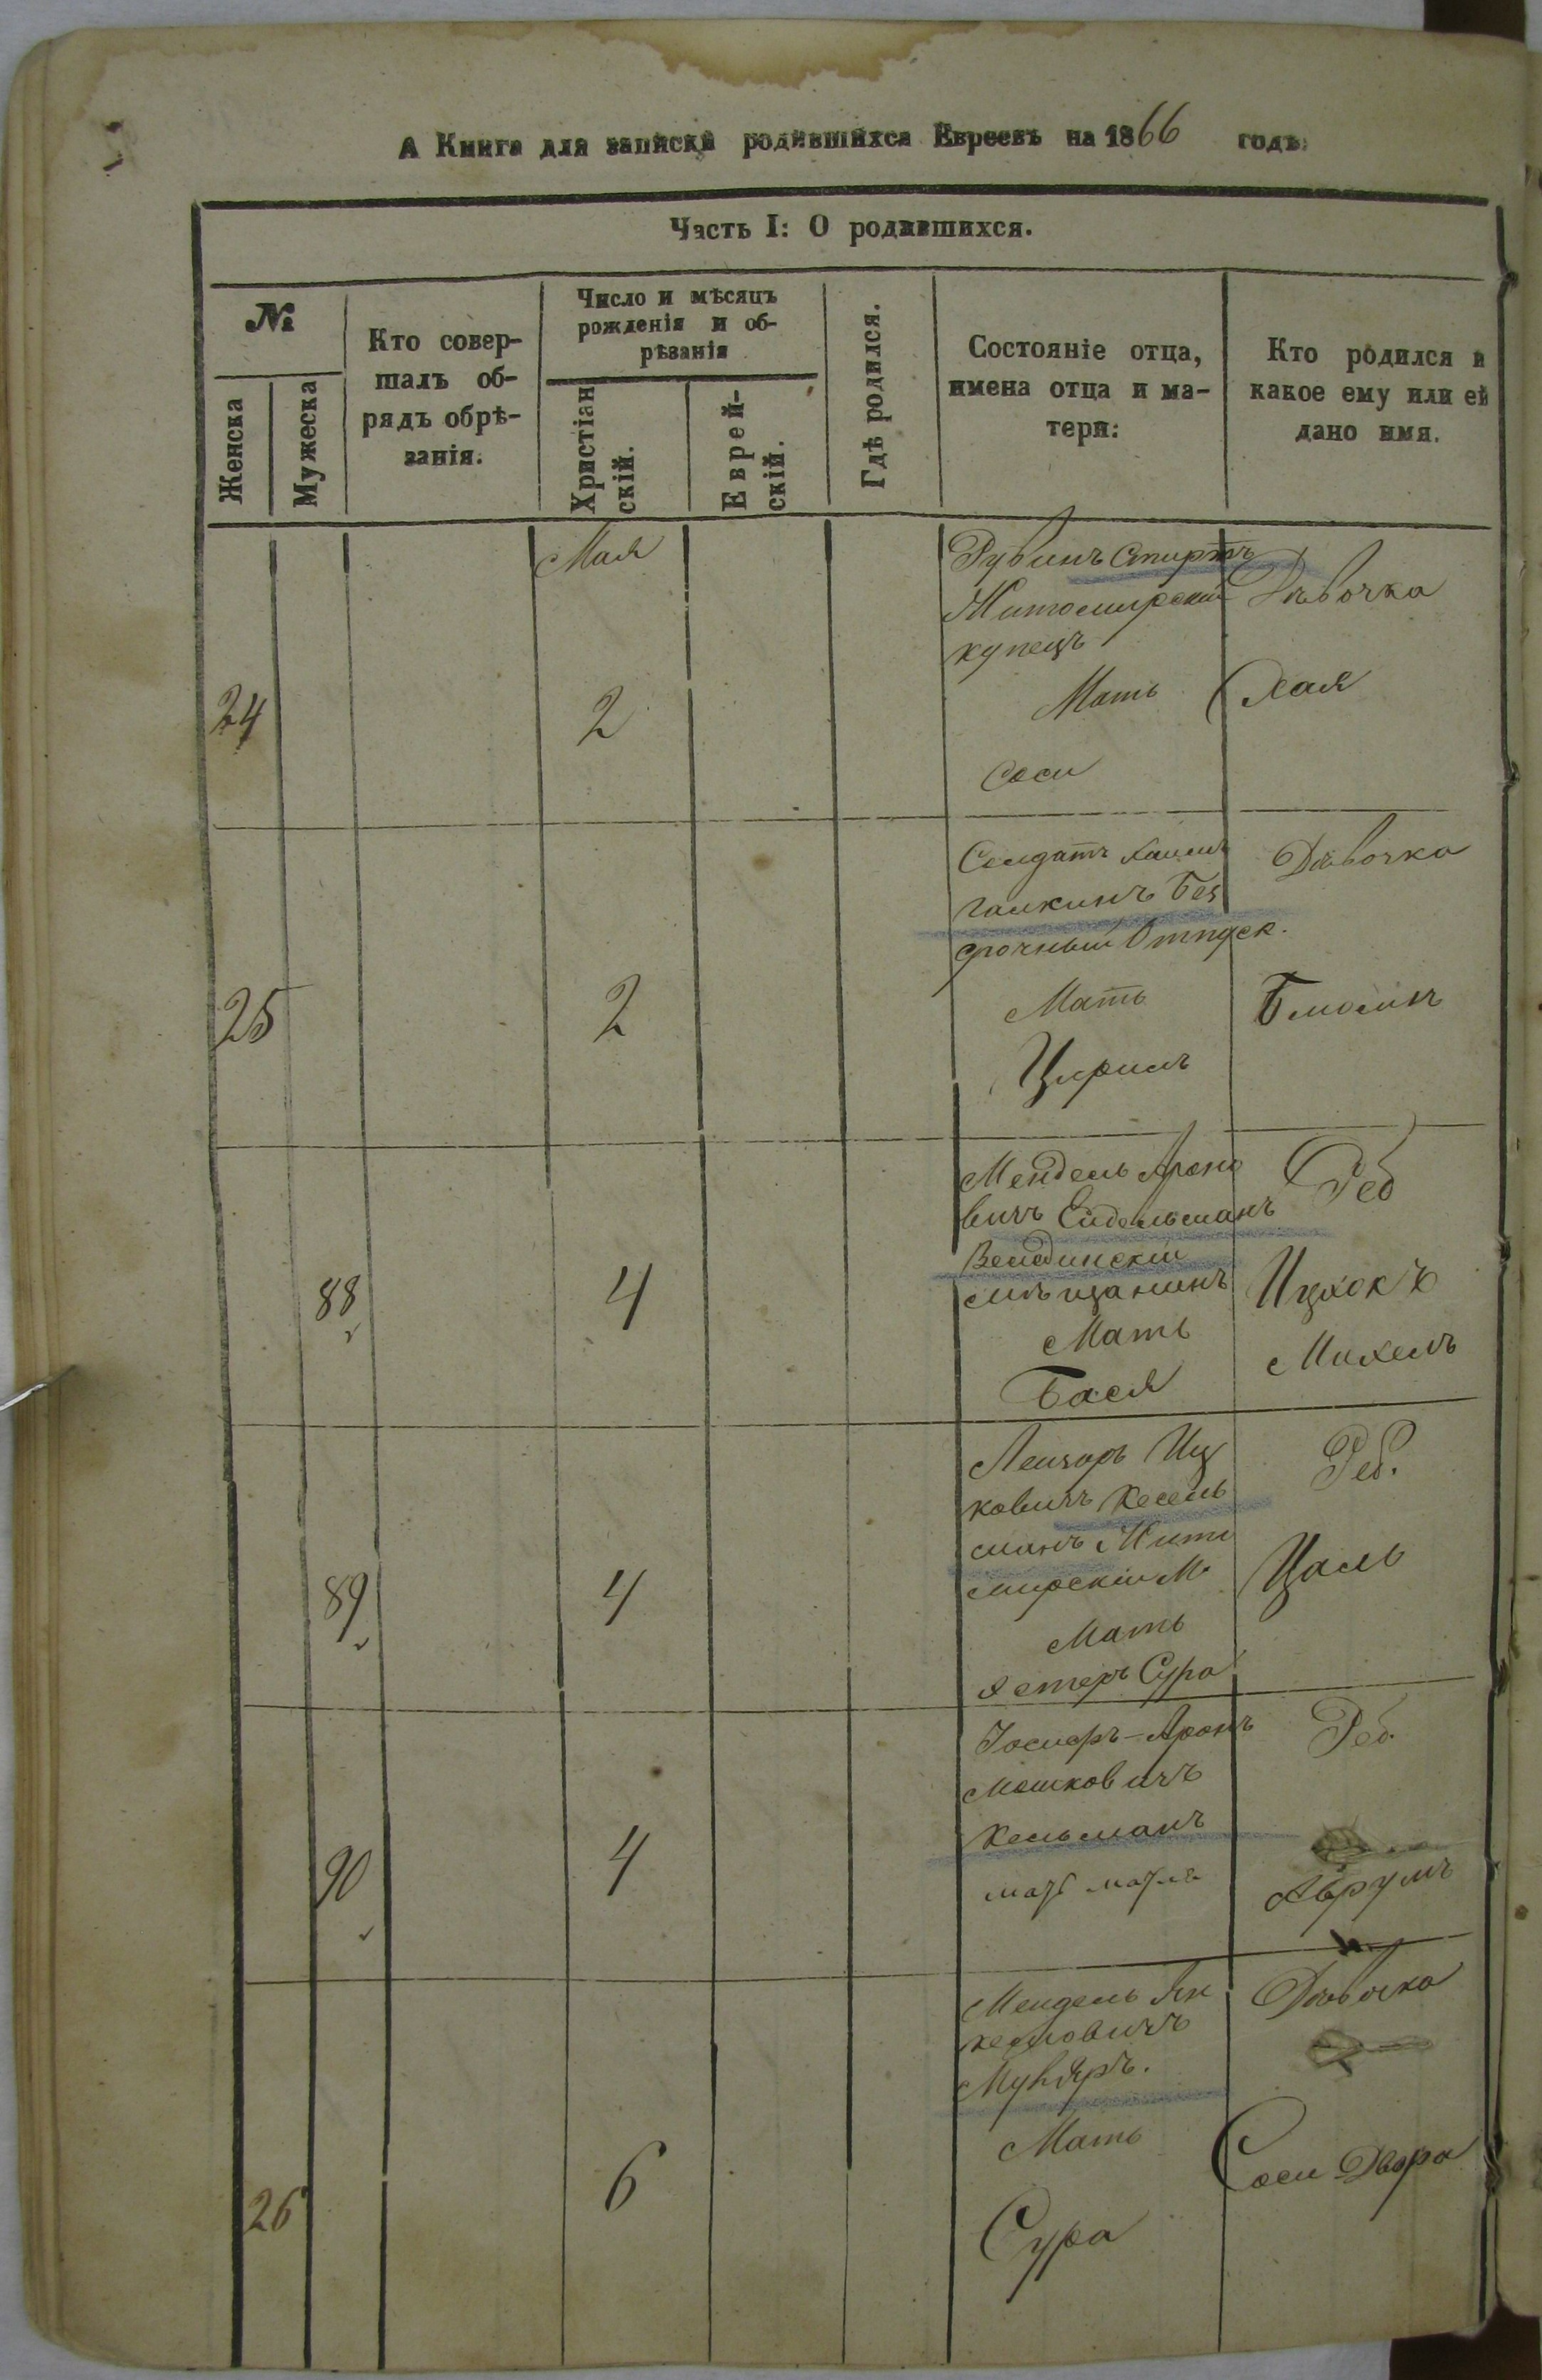 А Книга для записки родившихся Евреевъ на 1866 годъ.
Часть I: О родившихся.
№
Женска
Мужеска
Кто совер-
шалъ об-
рядъ обрѣ-
занія.
Число и мѣсяцъ
рожденія и об-
рѣзанія
Христіан
скій.
Еврей-
скій.
Гдѣ родился.
Состояніе отца,
имена отца и ма-
тери:
Кто родился и
какое ему или еѣ
дано имя.
Мая
24
2
Рувинъ Спиртъ
Житомирский
купецъ
Мать
Соси
Дѣвочка
Хая
25
2
Солдатъ Хаимъ
Галкинъ Без
срочный Отпуск.
Мать
Цирилъ
Дѣвочка
88
4
МендельАроно
вичъ Ейдельманъ
мѣщанинъ
Мать
Бася
Реб
Ицхокъ
Михель
89
4
Лейзоръ Иц
ковичъ Кесель
манъ Жито
мирскій М
Мать
Естеръ Сура
Реб.
Цаль
90
4
Іосифъ-Аронъ
Мошковичъ
Кельманъ
Реб.
Аврумъ
26
6
Мендель Ян
келовичъ
Мать
Сура
Дѣвочка
Соси Двора